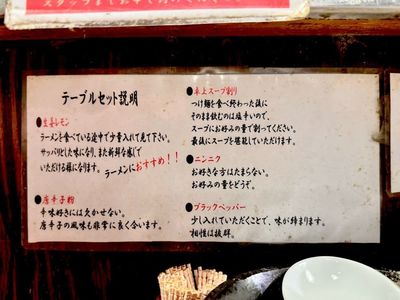 スタッフまでお申し付けください
テーブルセット説明
●生姜レモン
ラーメンを食べている途中で少量入れて見て下さい。
サッパリとした味になり、また新鮮な感じで
いただける様になります。ラーメンにおすすめ!!
●唐辛子粉
辛味好きには欠かせない。
唐辛子の風味も非常に良く合います。
●卓上スープ割り
つけ麺を食べ終わった後に
そのまま飲むのは塩辛いので、
スープにお好みの量で割ってください。
最後にスープを堪能していただけます。
●ニンニク
お好きな方はたまらない。
お好みの量をどうぞ。
●ブラックペッパー
少し入れていただくことで、味が締まります。
相性は抜群。